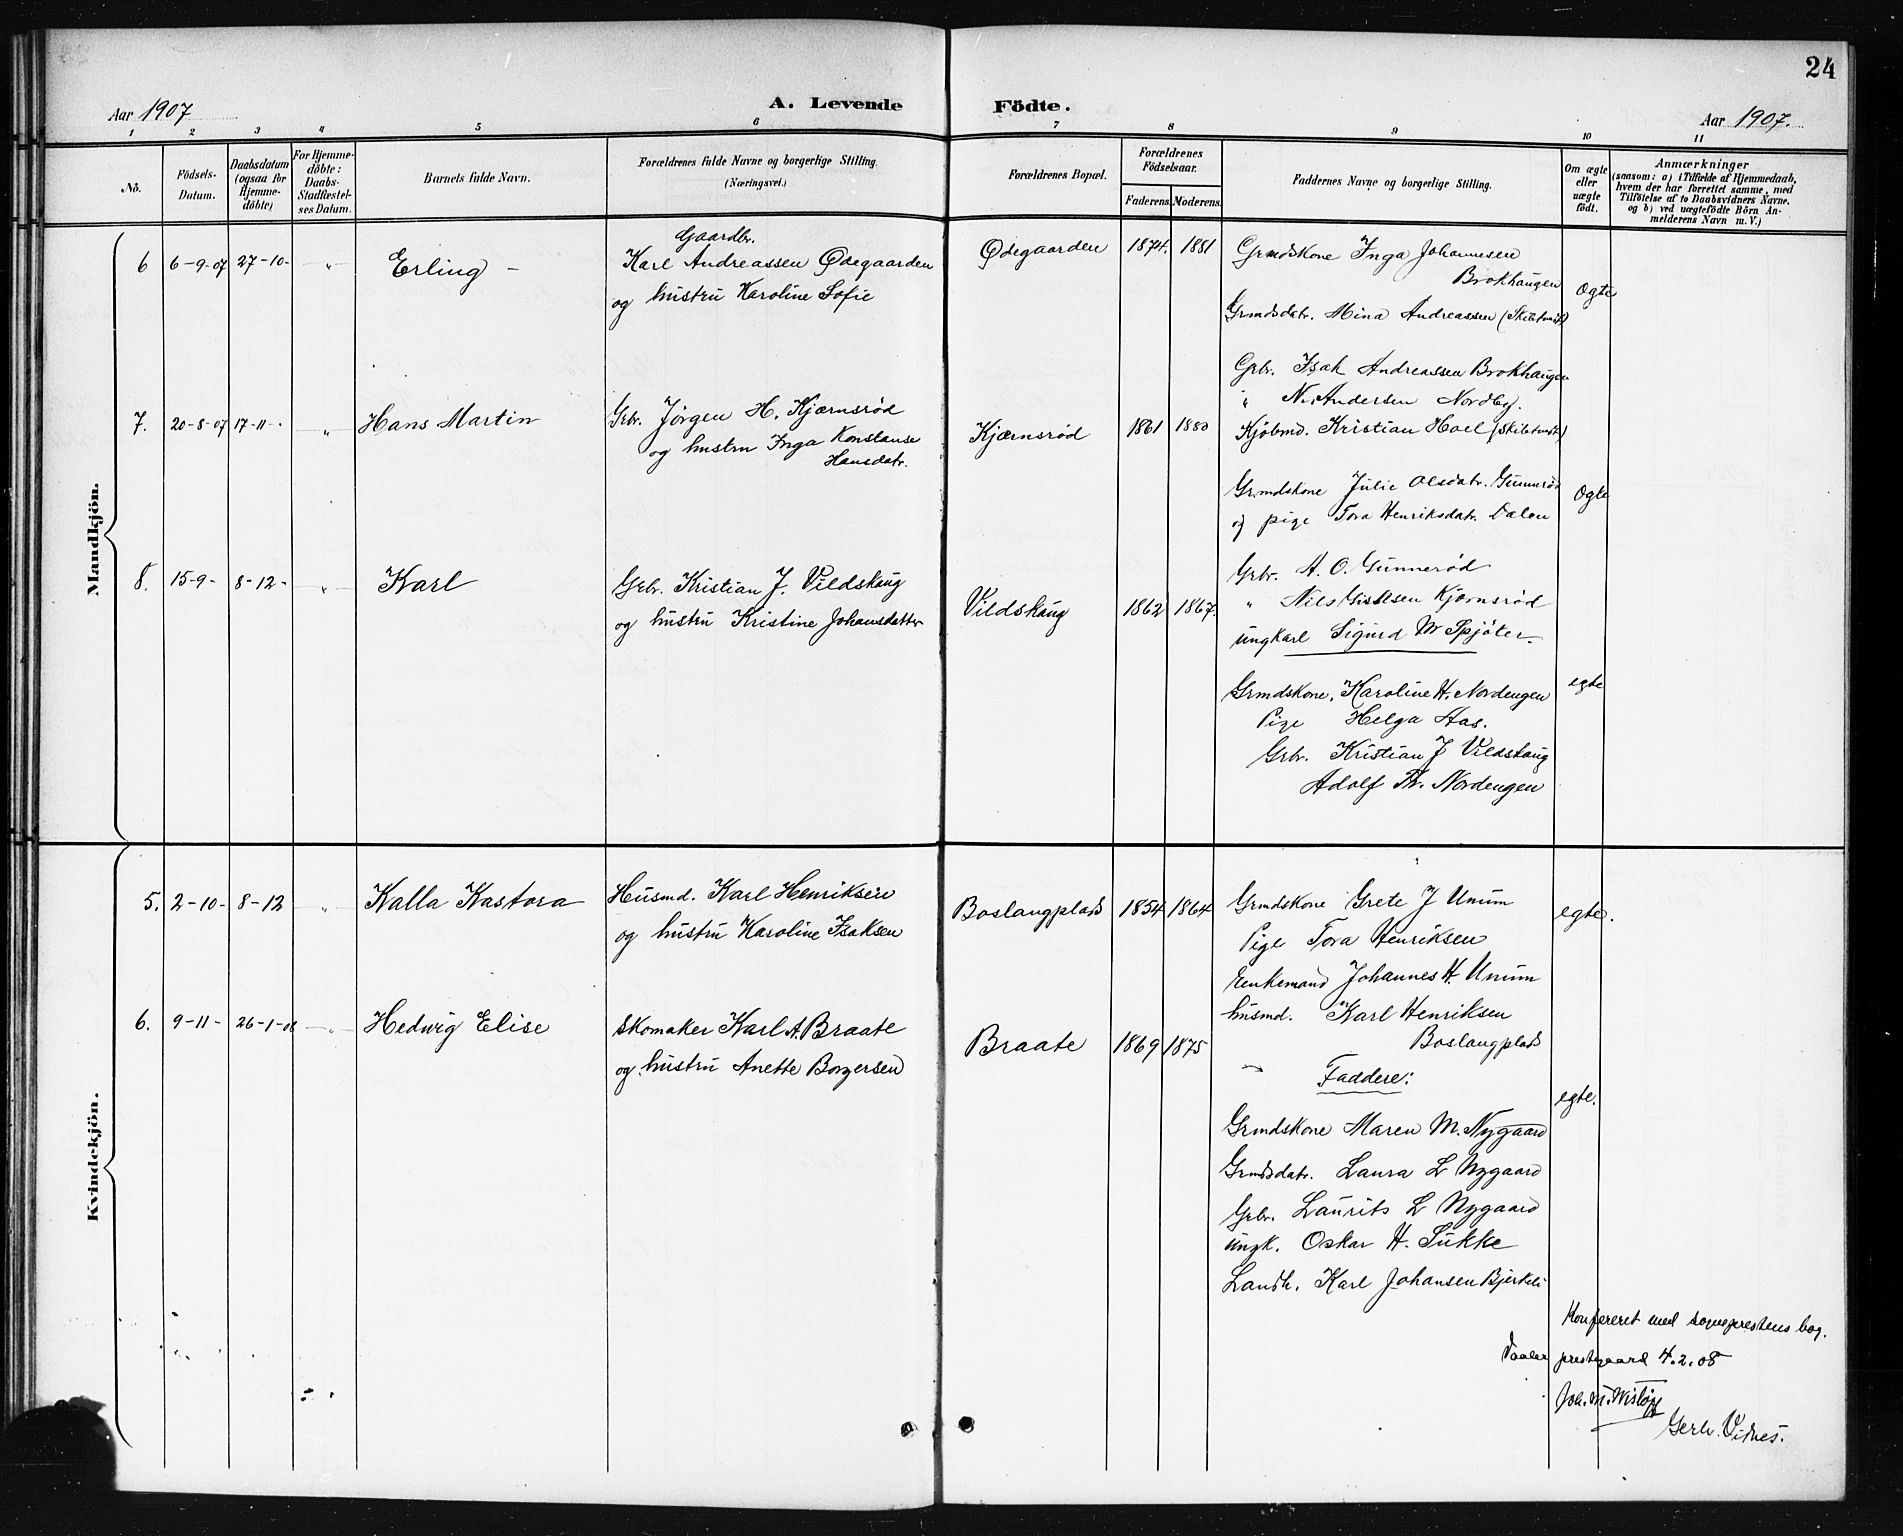 24
Aar 1907
A. Levende Födte.
Aar 1907.
1 2 3 4 5 6 7 8 9 10 11
Nô.
Födsels-Datum.
Daabsdatum (ogsaa for Hjemme-döbte)
For Hjemme-döbte: Daabs-Stadfæstel-ses Datum.
Barnets fulde Navn.
Forældrenes fulde Navne og borgerlige Stilling. (Næringsvei.)
Forældrenes Bopæl.
Forældrenes Födselsaar.
Faderens. Moderens.
Faddernes Navne og borgerlige Stilling.
Om ægte eller uægte födt.
Anmærkninger
(saasom: a) i Tilfælde af Hjemmedaab,
hvem der har forrettet samme, med
Tilföielse af to Daabsvidners Navne.
og b) ved uægtefödte Börn An-
melderens Navn m. V.)
Mandkjön.
6 6-9-07 27-10- " Erling -
Gaardbr.
Karl Andreassen Ødegaarden
og hustru Karoline Sofie
Ødegaarden 1874. 1881
Grmdskone Inga Johannesen
Brokhaugen
Grmdsdatr. Mina Andreassen (Skibtvedt)
Ogte
Grbr. Isak Andreassen Brokhaugen
" N. Andersen Nordby.
Kjöbmd. Kristian Hoel (Skibtvedt)
7. 20-8-07 17-11-. " Hans Martin
Grbr. Jörgen H. Kjærnsröd
og hustru Inga Konstanse
Hansdatr.
Kjærnsröd 1861 1880
Grmdskone Julie Olsdatr. Gunneröd
og pige Tora Henriksdatr. Dalen
Ogte
Grbr. A. O. Gunneröd
" Nils Kjærnsröd
ungkarl Sigurd M Spjöter.
8. 15-9- 8-12- " Karl
Grbr. Kristian J. Vildskaug
og hustru Kristine Johansdatter
Vildskaug 1862 1867.
Grmdskone. Karoline H. Nordengen
Pige Helga Aas.
Grbr. Kristian J Vildskaug
Adolf Th. Nordengen
egte
Kvindekjön.
5. 2-10- 8-12 " Kalla Kastora
Husmd. Karl Henriksen
og hustru Karoline Isaksen
Boslangplads 1854 1864
Grmdskone Grete J Unum
Pige Tora Henriksen
Enkemand Johannes H. Unum
husmd. Karl Henriksen
Boslangplads
egte.
6. 9-11- 26-1-08 " Hedwig Elise
Skomaker Karl A. Braate
og hustru Anette Borgersen
Braate 1869 1875
Faddere:
Grmdskone Maren M. Nygaard
Grmdsdatr. Laura L Nygaard
Grbr. Laurits L Nygaard
Ungk. Oskar H. Sukke
Landh. Karl Johansen Bjerkeli
egte.
Konfereret med sogneprestens bog.
Vaaler prestegaard 4.2.08
Joh. M.
Gerh. Vidnes.